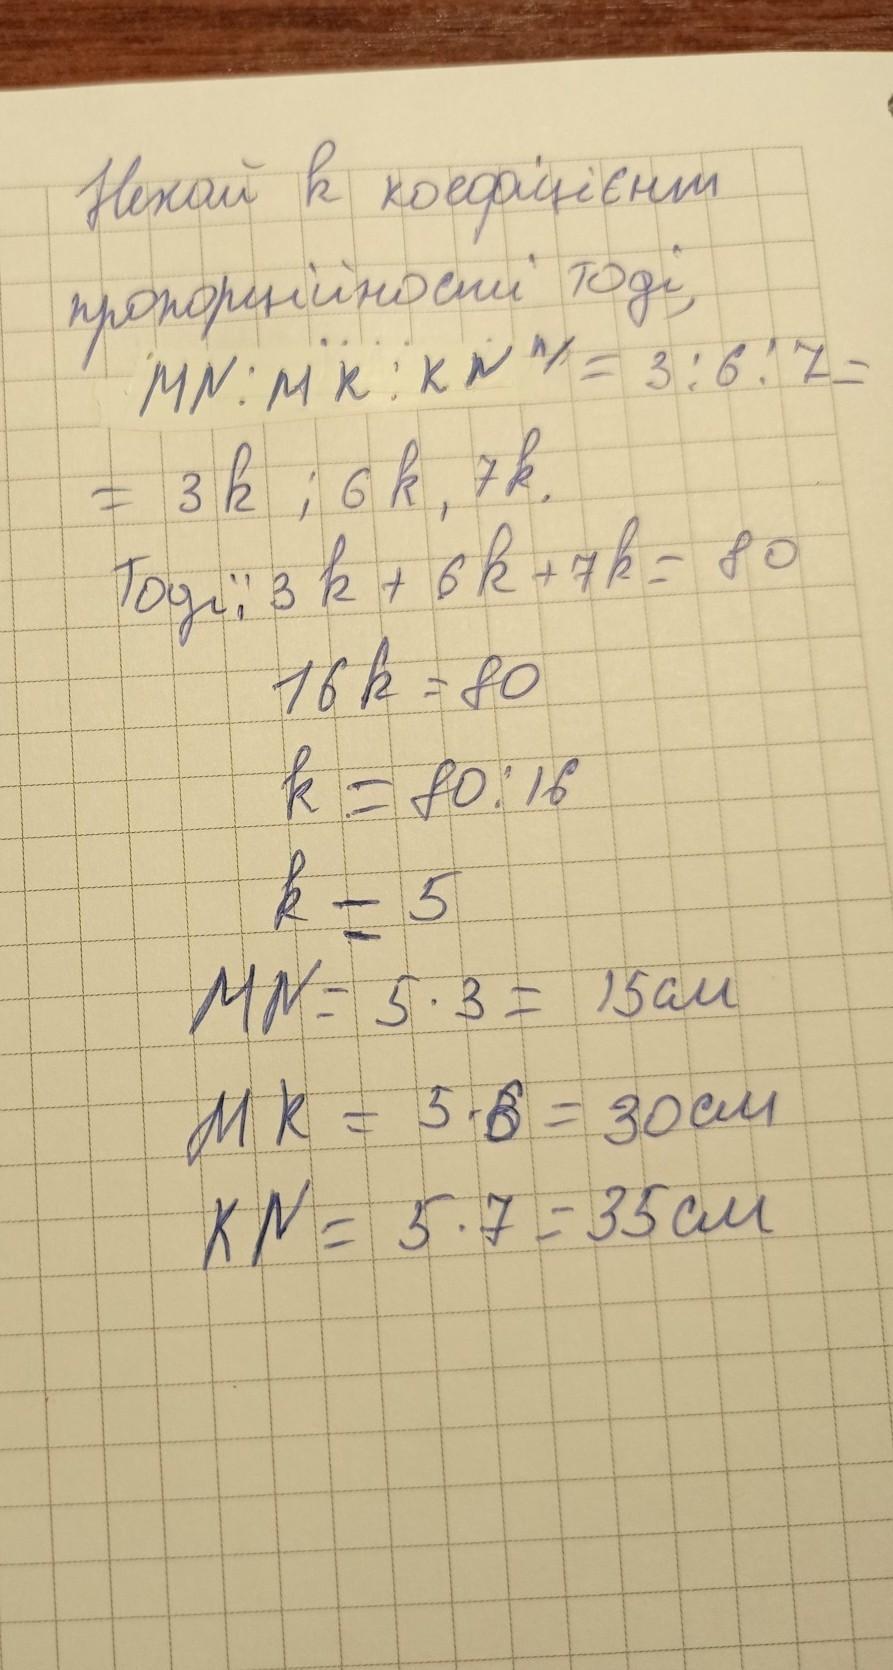 Нехай k коефіцієнт
пропорційності тоді,
MN : MK : KN = 3 : 6 : 7 =
= 3k ; 6k, 7k.
Тоді: 3k + 6k + 7k = 80
16k = 80
k = 80 : 16
k = 5
MN = 5 · 3 = 15 см
MK = 5 · 6 = 30 см
KN = 5 · 7 = 35 см